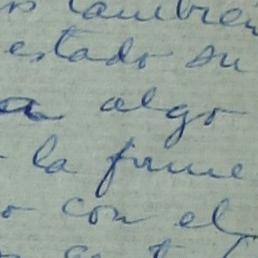 también
estado su
a algo
la firme
o con el